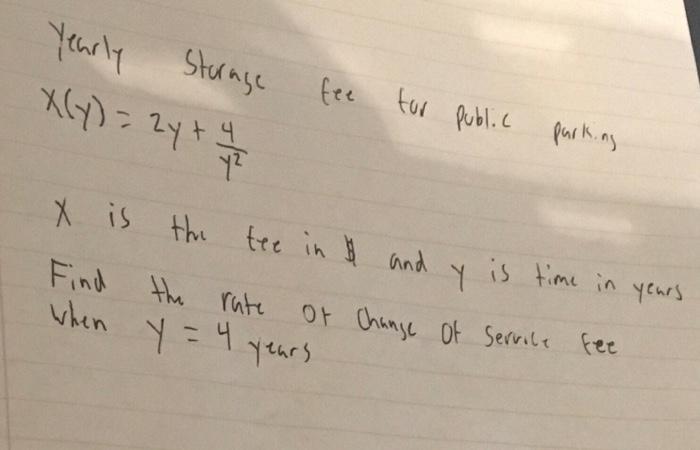 Yearly Storage fee for public parking
X(y) = 2y + 4/y²
X is the fee in $ and y is time in years
Find the rate of change of service fee
when y = 4 years